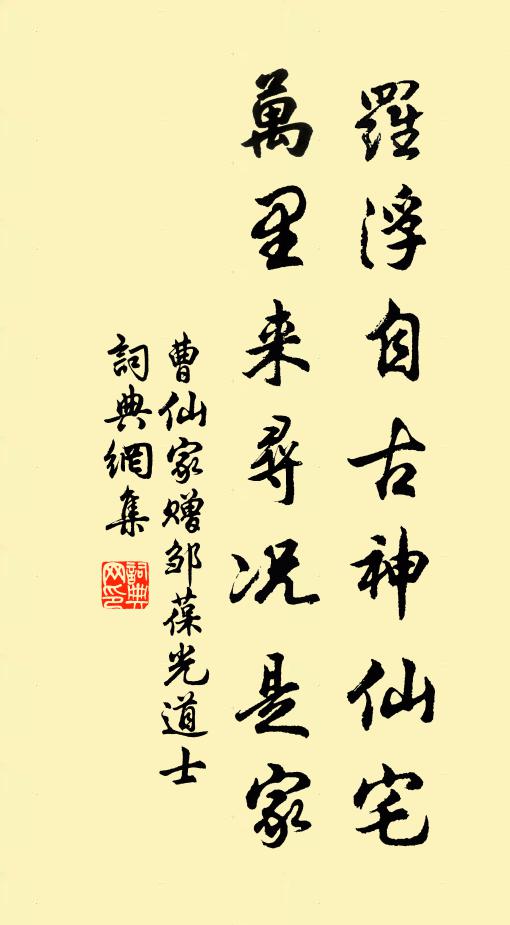 羅浮自古神仙宅
萬里来尋况是家
曹仙家赠邹葆光道士
詞典網集
詞典網印